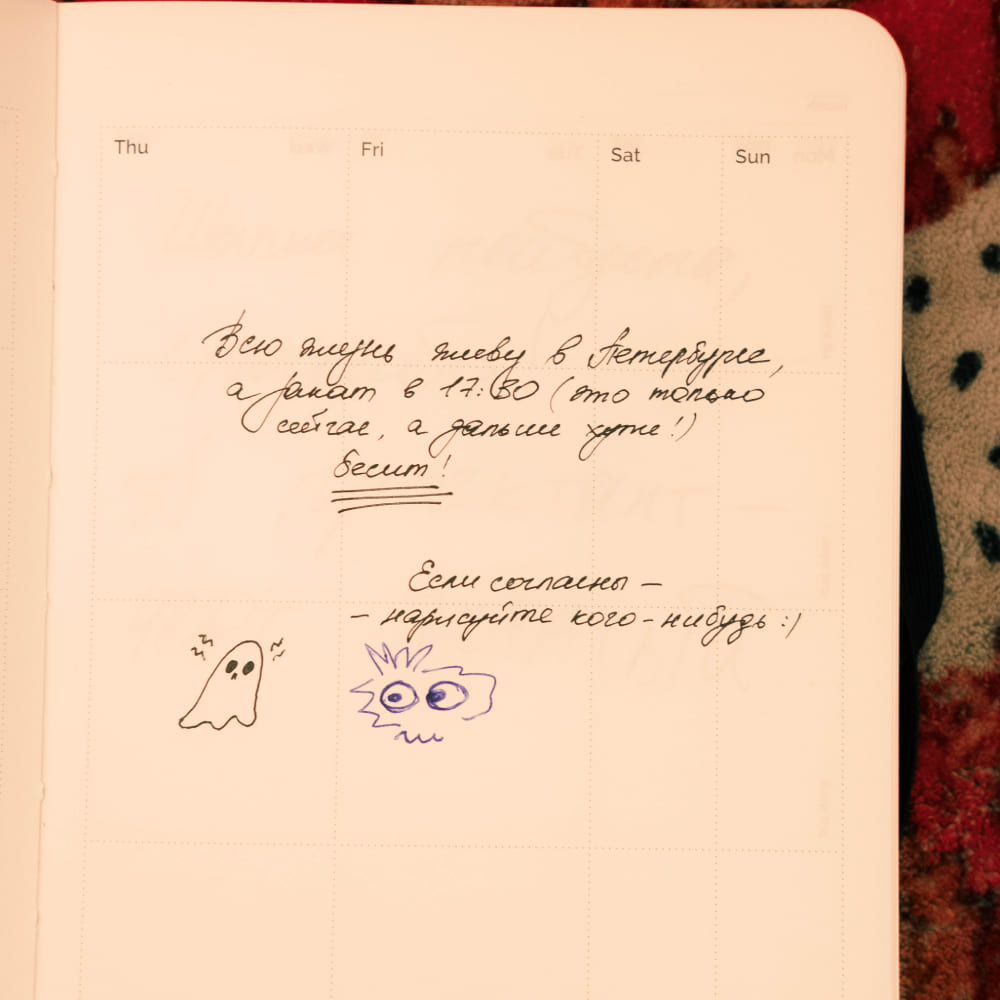 Thu Fri Sat Sun
Всю жизнь живу в Петербурге,
а закат в 17:30 (это только
сейчас, а дальше хуже!)
бесит!
Если согласны –
– нарисуйте кого-нибудь :)